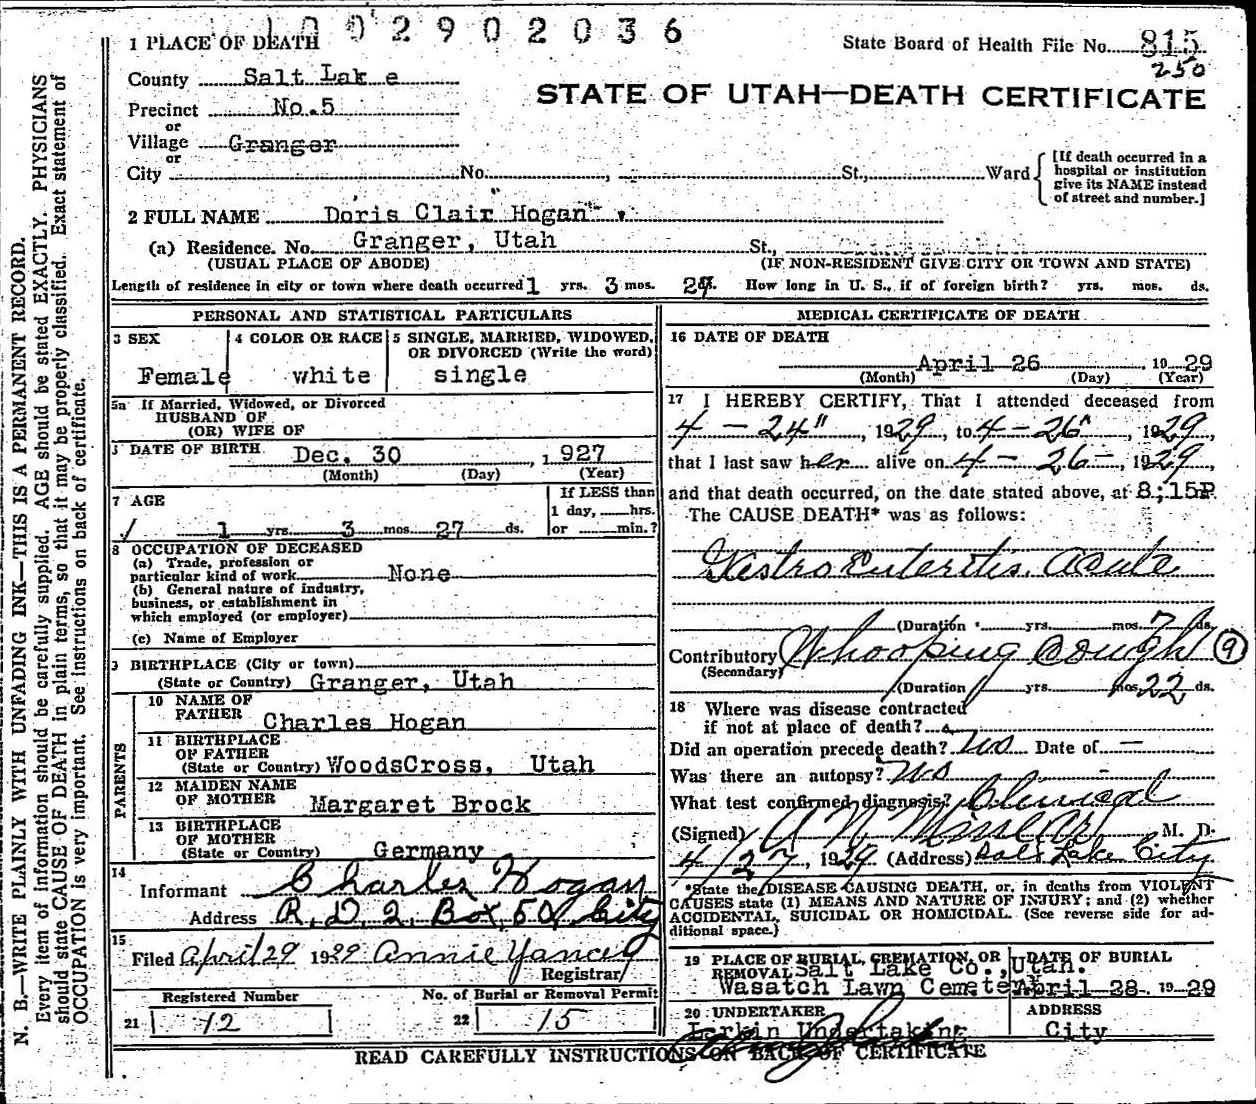 1002902036
1 PLACE OF DEATH
State Board of Health File No. 815
250
County Salt Lake
STATE OF UTAH—DEATH CERTIFICATE
Precinct No.5
or
Village Granger
or
City No. , St., Ward
[If death occurred in a
hospital or institution
give its NAME instead
of street and number.]
2 FULL NAME Doris Clair Hogan
(a) Residence. No. Granger, Utah St.,
(USUAL PLACE OF ABODE) (IF NON-RESIDENT GIVE CITY OR TOWN AND STATE)
Length of residence in city or town where death occurred 1 yrs. 3 mos. 27 ds. How long in U. S., if of foreign birth? yrs. mos. ds.
PERSONAL AND STATISTICAL PARTICULARS
3 SEX 4 COLOR OR RACE 5 SINGLE, MARRIED, WIDOWED,
OR DIVORCED (Write the word)
Female white single
5a If Married, Widowed, or Divorced
HUSBAND OF
(OR) WIFE OF
DATE OF BIRTH Dec. 30 , 1927
(Month) (Day) (Year)
7 AGE
If LESS than
1 day, hrs.
or min.?
1 yrs. 3 mos. 27 ds.
8 OCCUPATION OF DECEASED
(a) Trade, profession or
particular kind of work None
(b) General nature of industry,
business, or establishment in
which employed (or employer)
(c) Name of Employer
9 BIRTHPLACE (City or town)
(State or Country) Granger, Utah
PARENTS
10 NAME OF
FATHER Charles Hogan
11 BIRTHPLACE
OF FATHER
(State or Country) WoodsCross, Utah
12 MAIDEN NAME
OF MOTHER Margaret Brock
13 BIRTHPLACE
OF MOTHER
(State or Country) Germany
14
Informant Charles Hogan
Address R. D. 2, Box 50 City
15
Filed April 29 1929 Annie Yancey
Registrar
Registered Number No. of Burial or Removal Permit
21 12 22 15
MEDICAL CERTIFICATE OF DEATH
16 DATE OF DEATH
April 26 , 1929
(Month) (Day) (Year)
17 I HEREBY CERTIFY, That I attended deceased from
4 - 24" , 1929, to 4 - 26" , 1929,
that I last saw her alive on 4 - 26 - , 1929,
and that death occurred, on the date stated above, at 8;15P.
The CAUSE DEATH* was as follows:
Gastro Enteritis. acute
(Duration yrs. mos. 7 ds.
Contributory Whooping Cough 9
(Secondary)
(Duration yrs. mos. 22 ds.
18 Where was disease contracted
if not at place of death?
Did an operation precede death? No Date of —
Was there an autopsy? No
What test confirmed diagnosis? Clinical
(Signed) M. D.
4/27, 1929 (Address) Salt Lake City
*State the DISEASE CAUSING DEATH, or, in deaths from VIOLENT
CAUSES state (1) MEANS AND NATURE OF INJURY; and (2) whether
ACCIDENTAL, SUICIDAL OR HOMICIDAL. (See reverse side for ad-
ditional space.)
19 PLACE OF BURIAL, CREMATION, OR DATE OF BURIAL
REMOVAL Salt Lake Co., Utah.
Wasatch Lawn Cemetery April 28. 1929
20 UNDERTAKER ADDRESS
Larkin Undertaking City
READ CAREFULLY INSTRUCTIONS ON BACK OF CERTIFICATE
N. B.—WRITE PLAINLY WITH UNFADING INK—THIS IS A PERMANENT RECORD.
Every item of information should be carefully supplied. AGE should be stated EXACTLY. PHYSICIANS
should state CAUSE OF DEATH in plain terms, so that it may be properly classified. Exact statement of
OCCUPATION is very important. See instructions on back of certificate.